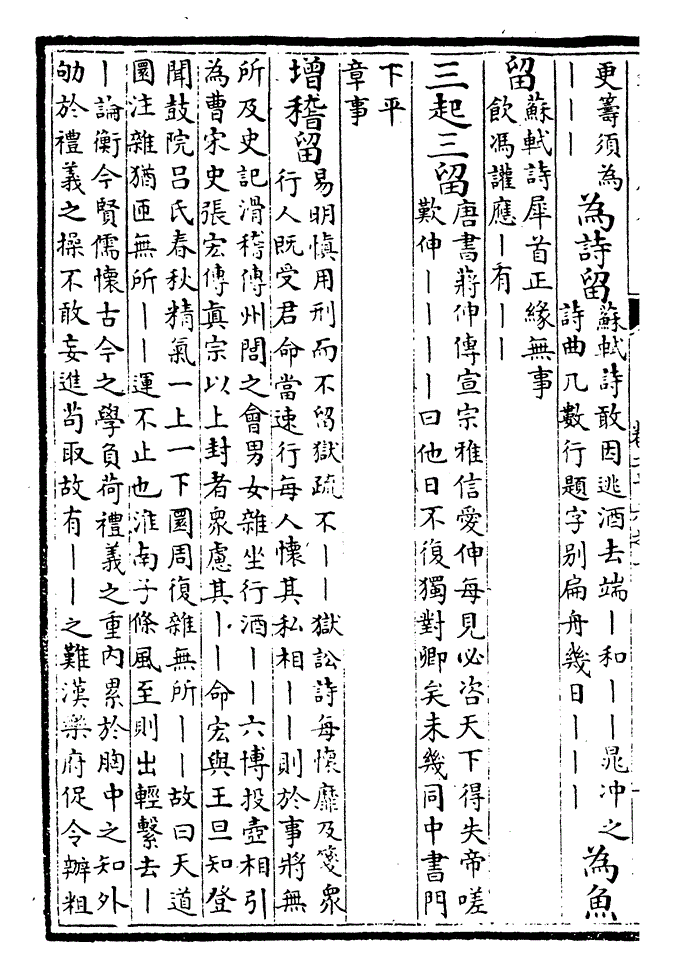 更籌須為
｜｜｜
為詩留
蘇軾詩敢因逃酒去端｜和｜｜晁冲之
詩曲几數行題字别扁舟幾日｜｜｜
為魚
留
蘇軾詩犀首正緣無事
飲馮讙應｜有｜｜
三起三留
唐書蔣伸傳宣宗雅信愛伸每見必咨天下得失帝嗟
歎伸｜｜｜｜曰他日不復獨對卿矣未幾同中書門
下平
章事
增稽留
易明慎用刑而不留獄疏不｜｜獄訟詩每懷靡及箋衆
行人既受君命當速行每人懷其私相｜｜則於事將無
所及史記滑稽傳州閭之會男女雜坐行酒｜｜六博投壺相引
為曹宋史張宏傳真宗以上封者衆慮其｜｜命宏與王旦知登
聞鼓院呂氏春秋精氣一上一下圜周復雜無所｜｜故曰天道
圜注雜猶匝無所｜｜運不止也淮南子條風至則出輕繫去｜
｜論衡今賢儒懷古今之學負荷禮義之重内累於胸中之知外
劬於禮義之操不敢妄進苟取故有｜｜之難漢樂府促令辦粗